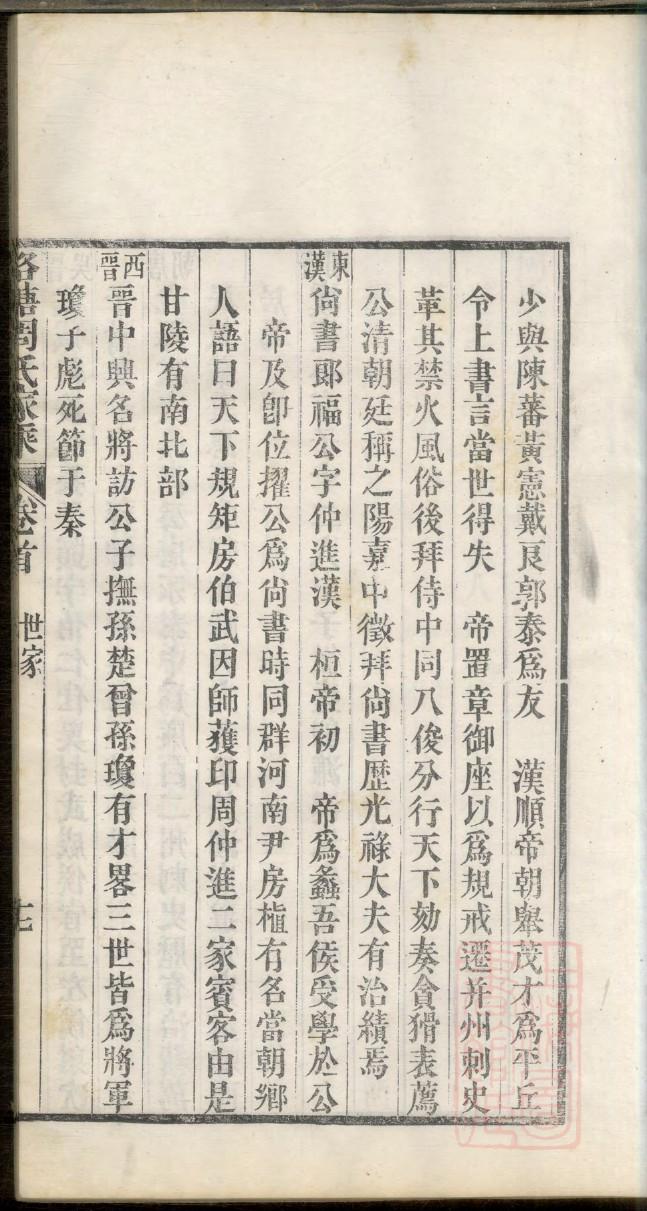 少與陳蕃黃憲戴良郭泰爲友　漢順帝朝舉茂才爲平丘
令上書言當世得失　帝置章御座以爲規戒遷并州刺史
革其禁火風俗後拜侍中同八俊分行天下劾奏貪猾表薦
公清朝廷稱之陽嘉中徵拜尙書歷光祿大夫有治績焉
東漢
尙書郞福公字仲進漢　桓帝初　帝爲蠡吾侯受學於公
帝及卽位擢公爲尙書時同群河南尹房植有名當朝鄕
人語曰天下規矩房伯武因師獲印周仲進二家賓客由是
甘陵有南北部
西晉
晉中興名將訪公子撫孫楚曾孫瓊有才畧三世皆爲將軍
瓊子彪死節于秦
塘周氏家乘　卷首　世家　七